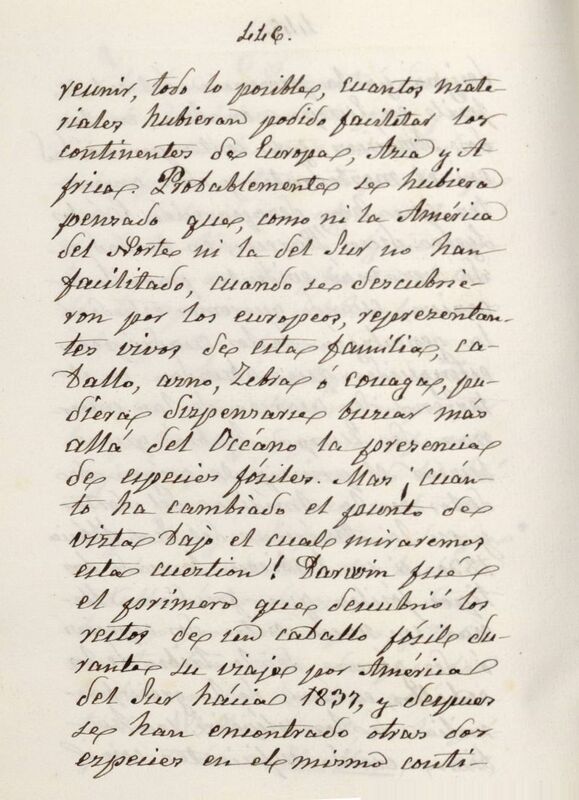 446.
reunir, todo lo posible, cuantos mate-
riales hubieran podido facilitar los
continentes de Europa, Asia y A
frica. Probablemente se hubiera
pensado que, como ni la América
del Norte ni la del Sur no han
facilitado, cuando se descubrie-
ron por los europeos, representan-
tes vivos de esta familia, ca-
ballo, asno, Zebra ó couaga, pu-
diera dispensarse buscar más
allá del Océano la presencia
de especies fósiles. Mas ¡cuán-
to ha cambiado el punto de
vista bajo el cual miraremos
esta cuestion! Darwin fué
el primero que descubrió los
restos de un caballo fósil du-
rante su viaje por América
del Sur hácia 1837, y despues
se han encontrado otras dos
especies en el mismo conti-